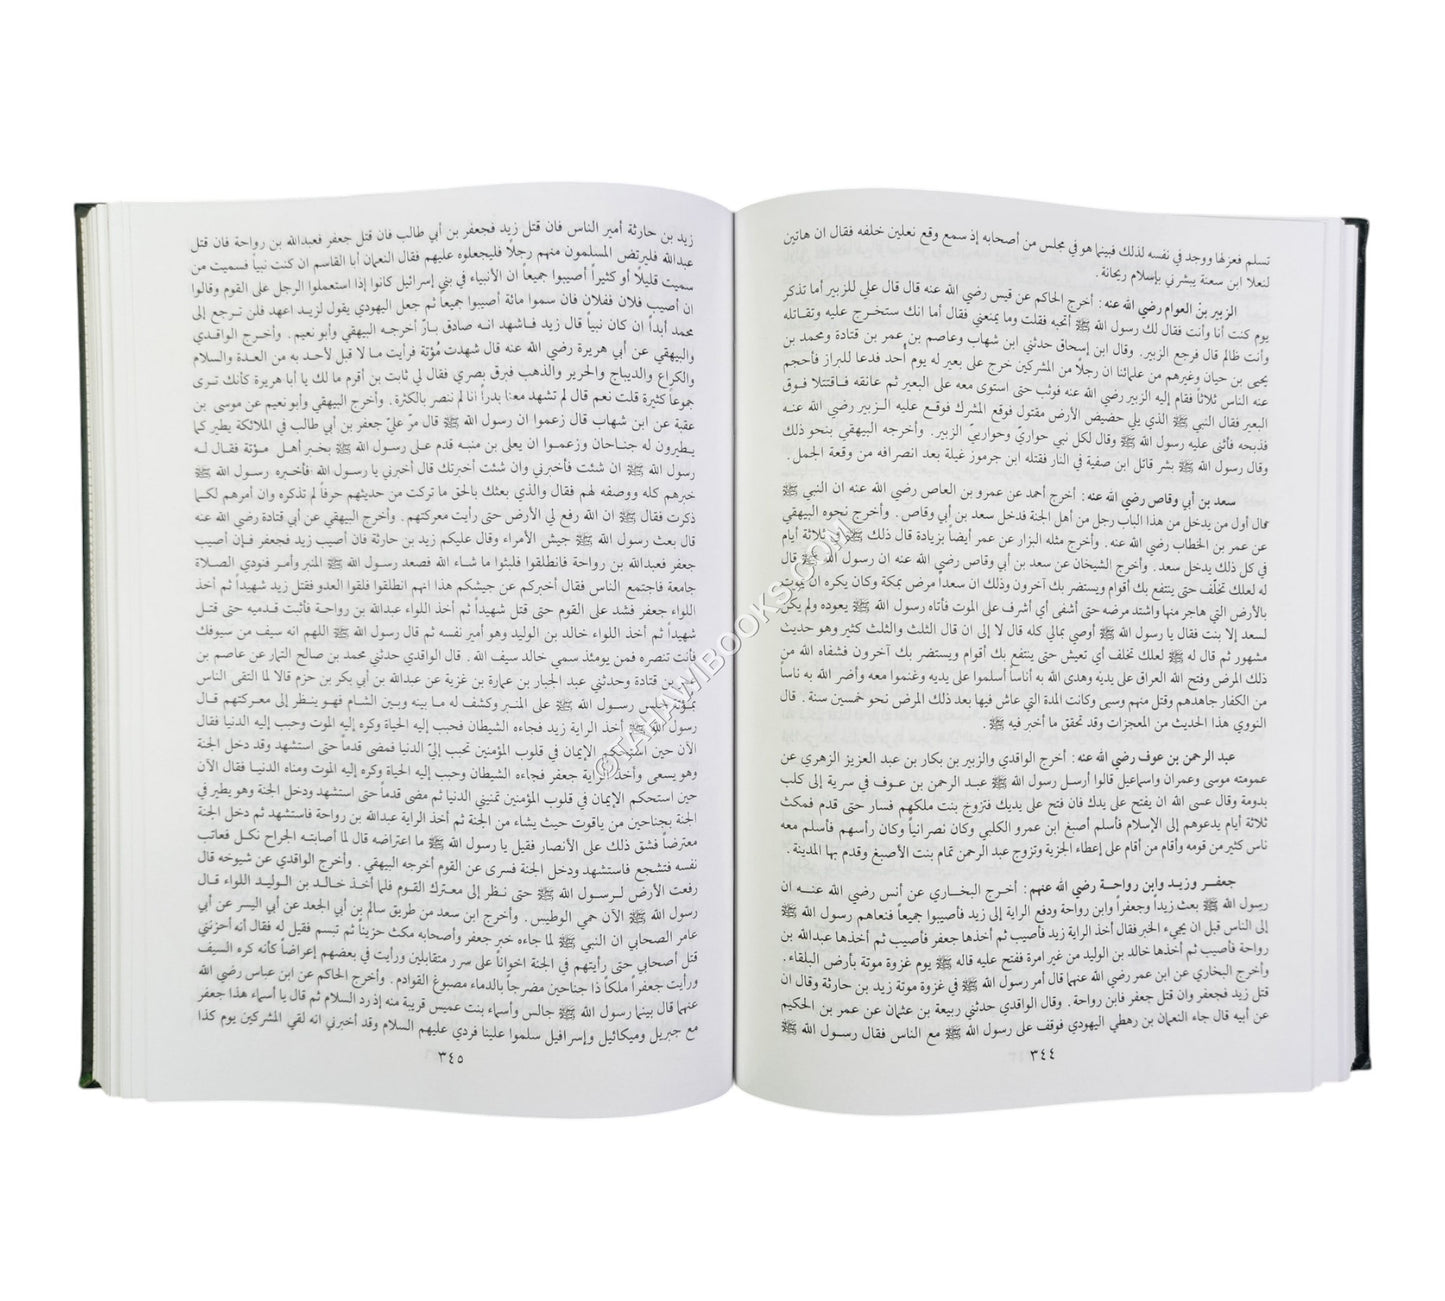 تسلم فعزلها ووجد في نفسه لذلك فبينما هو في مجلس من أصحابه إذ سمع وقع نعلين خلفه فقال ان هاتين
لنعلا ابن سعنة يبشرني بإسلام ريحانة .
الزبير بن العوام رضي الله عنه : أخرج الحاكم عن قيس رضي الله عنه قال قال علي للزبير أما تذكر
يوم كنت أنا وأنت فقال لك رسول الله ﷺ أتحبه فقلت وما يمنعني فقال أما انك ستخرج عليه وتقاتله
وأنت ظالم قال فرجع الزبير. وقال ابن إسحاق حدثني ابن شهاب وعاصم بن عمر بن قتادة ومحمد بن
يحيى بن حيان وغيرهم من علمائنا ان رجلًا من المشركين خرج على بعير له يوم أحد فدعا للبراز فأحجم
عنه الناس ثلاثاً فقام إليه الزبير رضي الله عنه فوثب حتى استوى معه على البعير ثم عانقه فاقتتلا فوق
البعير فقال النبي ﷺ الذي يلي حضيض الأرض مقتول فوقع المشرك فوقع عليه الزبير رضي الله عنه
فذبحه فأثنى عليه رسول الله ﷺ وقال لكل نبي حواريّ وحواريّ الزبير. وأخرجه البيهقي بنحو ذلك
وقال رسول الله ﷺ بشر قاتل ابن صفية في النار فقتله ابن جرموز غيلة بعد انصرافه من وقعة الجمل .
سعد بن أبي وقاص رضي الله عنه : أخرج أحمد عن عمرو بن العاص رضي الله عنه ان النبي ﷺ
قال أول من يدخل من هذا الباب رجل من أهل الجنة فدخل سعد بن أبي وقاص . وأخرج نحوه البيهقي
عن عمر بن الخطاب رضي الله عنه . وأخرج مثله البزار عن عمر أيضاً بزيادة قال ذلك ﷺ ثلاثة أيام
في كل ذلك يدخل سعد . وأخرج الشيخان عن سعد بن أبي وقاص رضي الله عنه ان رسول الله ﷺ قال
له لعلك تخلّف حتى ينتفع بك أقوام ويستضر بك آخرون وذلك ان سعداً مرض بمكة وكان يكره ان يموت
بالأرض التي هاجر منها واشتد مرضه حتى أشفى أي أشرف على الموت فأتاه رسول الله ﷺ يعوده ولم يكن
لسعد إلا بنت فقال يا رسول الله ﷺ أوصي بمالي كله قال لا إلى ان قال الثلث والثلث كثير وهو حديث
مشهور ثم قال له ﷺ لعلك تخلف أي تعيش حتى ينتفع بك أقوام ويستضر بك آخرون فشفاه الله من
ذلك المرض وفتح الله العراق على يديه وهدى الله به أناساً أسلموا على يديه وغنموا معه وأضر الله به ناساً
من الكفار جاهدهم وقتل منهم وسبى وكانت المدة التي عاش فيها بعد ذلك المرض نحو خمسين سنة . قال
النووي هذا الحديث من المعجزات وقد تحقق ما أخبر فيه ﷺ .
عبد الرحمن بن عوف رضي الله عنه : أخرج الواقدي والزبير بن بكار بن عبد العزيز الزهري عن
عمومته موسى وعمران واسماعيل قالوا أرسل رسول الله ﷺ عبد الرحمن بن عوف في سرية إلى كلب
بدومة وقال عسى الله ان يفتح على يدك فان فتح على يديك فتزوج بنت ملكهم فسار حتى قدم فمكث
ثلاثة أيام يدعوهم إلى الإسلام فأسلم أصبغ ابن عمرو الكلبي وكان نصرانياً وكان رأسهم فأسلم معه
ناس كثير من قومه وأقام من أقام على إعطاء الجزية وتزوج عبد الرحمن تمام بنت الأصبغ وقدم بها المدينة .
جعفر وزيد وابن رواحة رضي الله عنهم : أخرج البخاري عن أنس رضي الله عنه ان
رسول الله ﷺ بعث زيداً وجعفراً وابن رواحة ودفع الراية إلى زيد فأصيبوا جميعاً فنعاهم رسول الله ﷺ
إلى الناس قبل ان يجيء الخبر فقال أخذ الراية زيد فأصيب ثم أخذها جعفر فأصيب ثم أخذها عبدالله بن
رواحة فأصيب ثم أخذها خالد بن الوليد من غير امرة ففتح عليه قاله ﷺ يوم غزوة موتة بأرض البلقاء .
وأخرج البخاري عن ابن عمر رضي الله عنهما قال أمر رسول الله ﷺ في غزوة موتة زيد بن حارثة وقال ان
قتل زيد فجعفر وان قتل جعفر فابن رواحة . وقال الواقدي حدثني ربيعة بن عثمان عن عمر بن الحكيم
عن أبيه قال جاء النعمان بن رهطي اليهودي فوقف على رسول الله ﷺ مع الناس فقال رسول الله ﷺ
٣٤٤
زيد بن حارثة أمير الناس فان قتل زيد فجعفر بن أبي طالب فان قتل جعفر فعبدالله بن رواحة فان قتل
عبدالله فليرتض المسلمون منهم رجلًا فليجعلوه عليهم فقال النعمان أبا القاسم ان كنت نبياً فسميت من
سميت قليلًا أو كثيراً أصيبوا جميعاً ان الأنبياء في بني إسرائيل كانوا إذا استعملوا الرجل على القوم وقالوا
ان أصيب فلان ففلان فان سموا مائة أصيبوا جميعاً ثم جعل اليهودي يقول لزيد اعهد فلن ترجع إلى
محمد أبداً ان كان نبياً قال زيد فاشهد انه صادق بارّ أخرجه البيهقي وأبو نعيم . وأخرج الواقدي
والبيهقي عن أبي هريرة رضي الله عنه قال شهدت مُؤتة فرأيت ما لا قبل لأحد به من العدة والسلام
والكراع والديباج والحرير والذهب فبرق بصري فقال لي ثابت بن أقرم ما لك يا أبا هريرة كأنك ترى
جموعاً كثيرة قلت نعم قال لم تشهد معنا بدراً انا لم ننصر بالكثرة . وأخرج البيهقي وأبو نعيم عن موسى بن
عقبة عن ابن شهاب قال زعموا ان رسول الله ﷺ قال مرّ عليّ جعفر بن أبي طالب في الملائكة يطير كما
يطيرون له جناحان وزعموا ان يعلى بن منبه قدم على رسول الله ﷺ بخبر أهل مؤتة فقال له
رسول الله ﷺ ان شئت فأخبرني وان شئت أخبرتك قال أخبرني يا رسول الله فأخبره رسول الله ﷺ
خبرهم كله ووصفه لهم فقال والذي بعثك بالحق ما تركت من حديثهم حرفاً لم تذكره وان أمرهم لكما
ذكرت فقال ﷺ ان الله رفع لي الأرض حتى رأيت معركتهم . وأخرج البيهقي عن أبي قتادة رضي الله عنه
قال بعث رسول الله ﷺ جيش الأمراء وقال عليكم زيد بن حارثة فان أصيب زيد فجعفر فإن أصيب
جعفر فعبدالله بن رواحة فانطلقوا فلبثوا ما شاء الله فصعد رسول الله ﷺ المنبر وأمر فنودي الصلاة
جامعة فاجتمع الناس فقال أخبركم عن جيشكم هذا انهم انطلقوا فلقوا العدو فقتل زيد شهيداً ثم أخذ
اللواء جعفر فشد على القوم حتى قتل شهيداً ثم أخذ اللواء عبدالله بن رواحة فأثبت قدميه حتى قتل
شهيداً ثم أخذ اللواء خالد بن الوليد وهو أمير نفسه ثم قال رسول الله ﷺ اللهم انه سيف من سيوفك
فأنت تنصره فمن يومئذ سمي خالد سيف الله . قال الواقدي حدثني محمد بن صالح التمار عن عاصم بن
عمر بن قتادة وحدثني عبد الجبار بن عمارة بن غزية عن عبدالله بن أبي بكر بن حزم قالا لما التقى الناس
بمؤتة جلس رسول الله ﷺ على المنبر وكشف له ما بينه وبين الشام فهو ينظر إلى معركتهم قال
رسول الله ﷺ أخذ الراية زيد فجاءه الشيطان فحبب إليه الحياة وكره إليه الموت وحبب إليه الدنيا فقال
الآن حين استحكم الإيمان في قلوب المؤمنين تحبب إليّ الدنيا فمضى قدماً حتى استشهد وقد دخل الجنة
وهو يسعى وأخذ الراية جعفر فجاءه الشيطان وحبب إليه الحياة وكره إليه الموت ومناه الدنيا فقال الآن
حين استحكم الإيمان في قلوب المؤمنين تمنيني الدنيا ثم مضى قدماً حتى استشهد ودخل الجنة وهو يطير في
الجنة بجناحين من ياقوت حيث يشاء من الجنة ثم أخذ الراية عبدالله بن رواحة فاستشهد ثم دخل الجنة
معترضاً فشق ذلك على الأنصار فقيل يا رسول الله ﷺ ما اعتراضه قال لما أصابته الجراح نكل فعاتب
نفسه فتشجع فاستشهد ودخل الجنة فسرى عن القوم أخرجه البيهقي . وأخرج الواقدي عن شيوخه قال
رفعت الأرض لرسول الله ﷺ حتى نظر إلى معترك القوم فلما أخذ خالد بن الوليد اللواء قال
رسول الله ﷺ الآن حمي الوطيس . وأخرج ابن سعد من طريق سالم بن أبي الجعد عن أبي اليسر عن أبي
عامر الصحابي ان النبي ﷺ لما جاءه خبر جعفر وأصحابه مكث حزيناً ثم تبسم فقيل له فقال أنه أحزنني
قتل أصحابي حتى رأيتهم في الجنة اخواناً على سرر متقابلين ورأيت في بعضهم إعراضاً كأنه كره السيف
ورأيت جعفراً ملكاً ذا جناحين مضرجاً بالدماء مصبوغ القوادم . وأخرج الحاكم عن ابن عباس رضي الله
عنهما قال بينما رسول الله ﷺ جالس وأسماء بنت عميس قريبة منه إذ رد السلام ثم قال يا أسماء هذا جعفر
مع جبريل وميكائيل وإسرافيل سلموا علينا فردي عليهم السلام وقد أخبرني انه لقي المشركين يوم كذا
٣٤٥
©TAHAWIBOOKS.COM